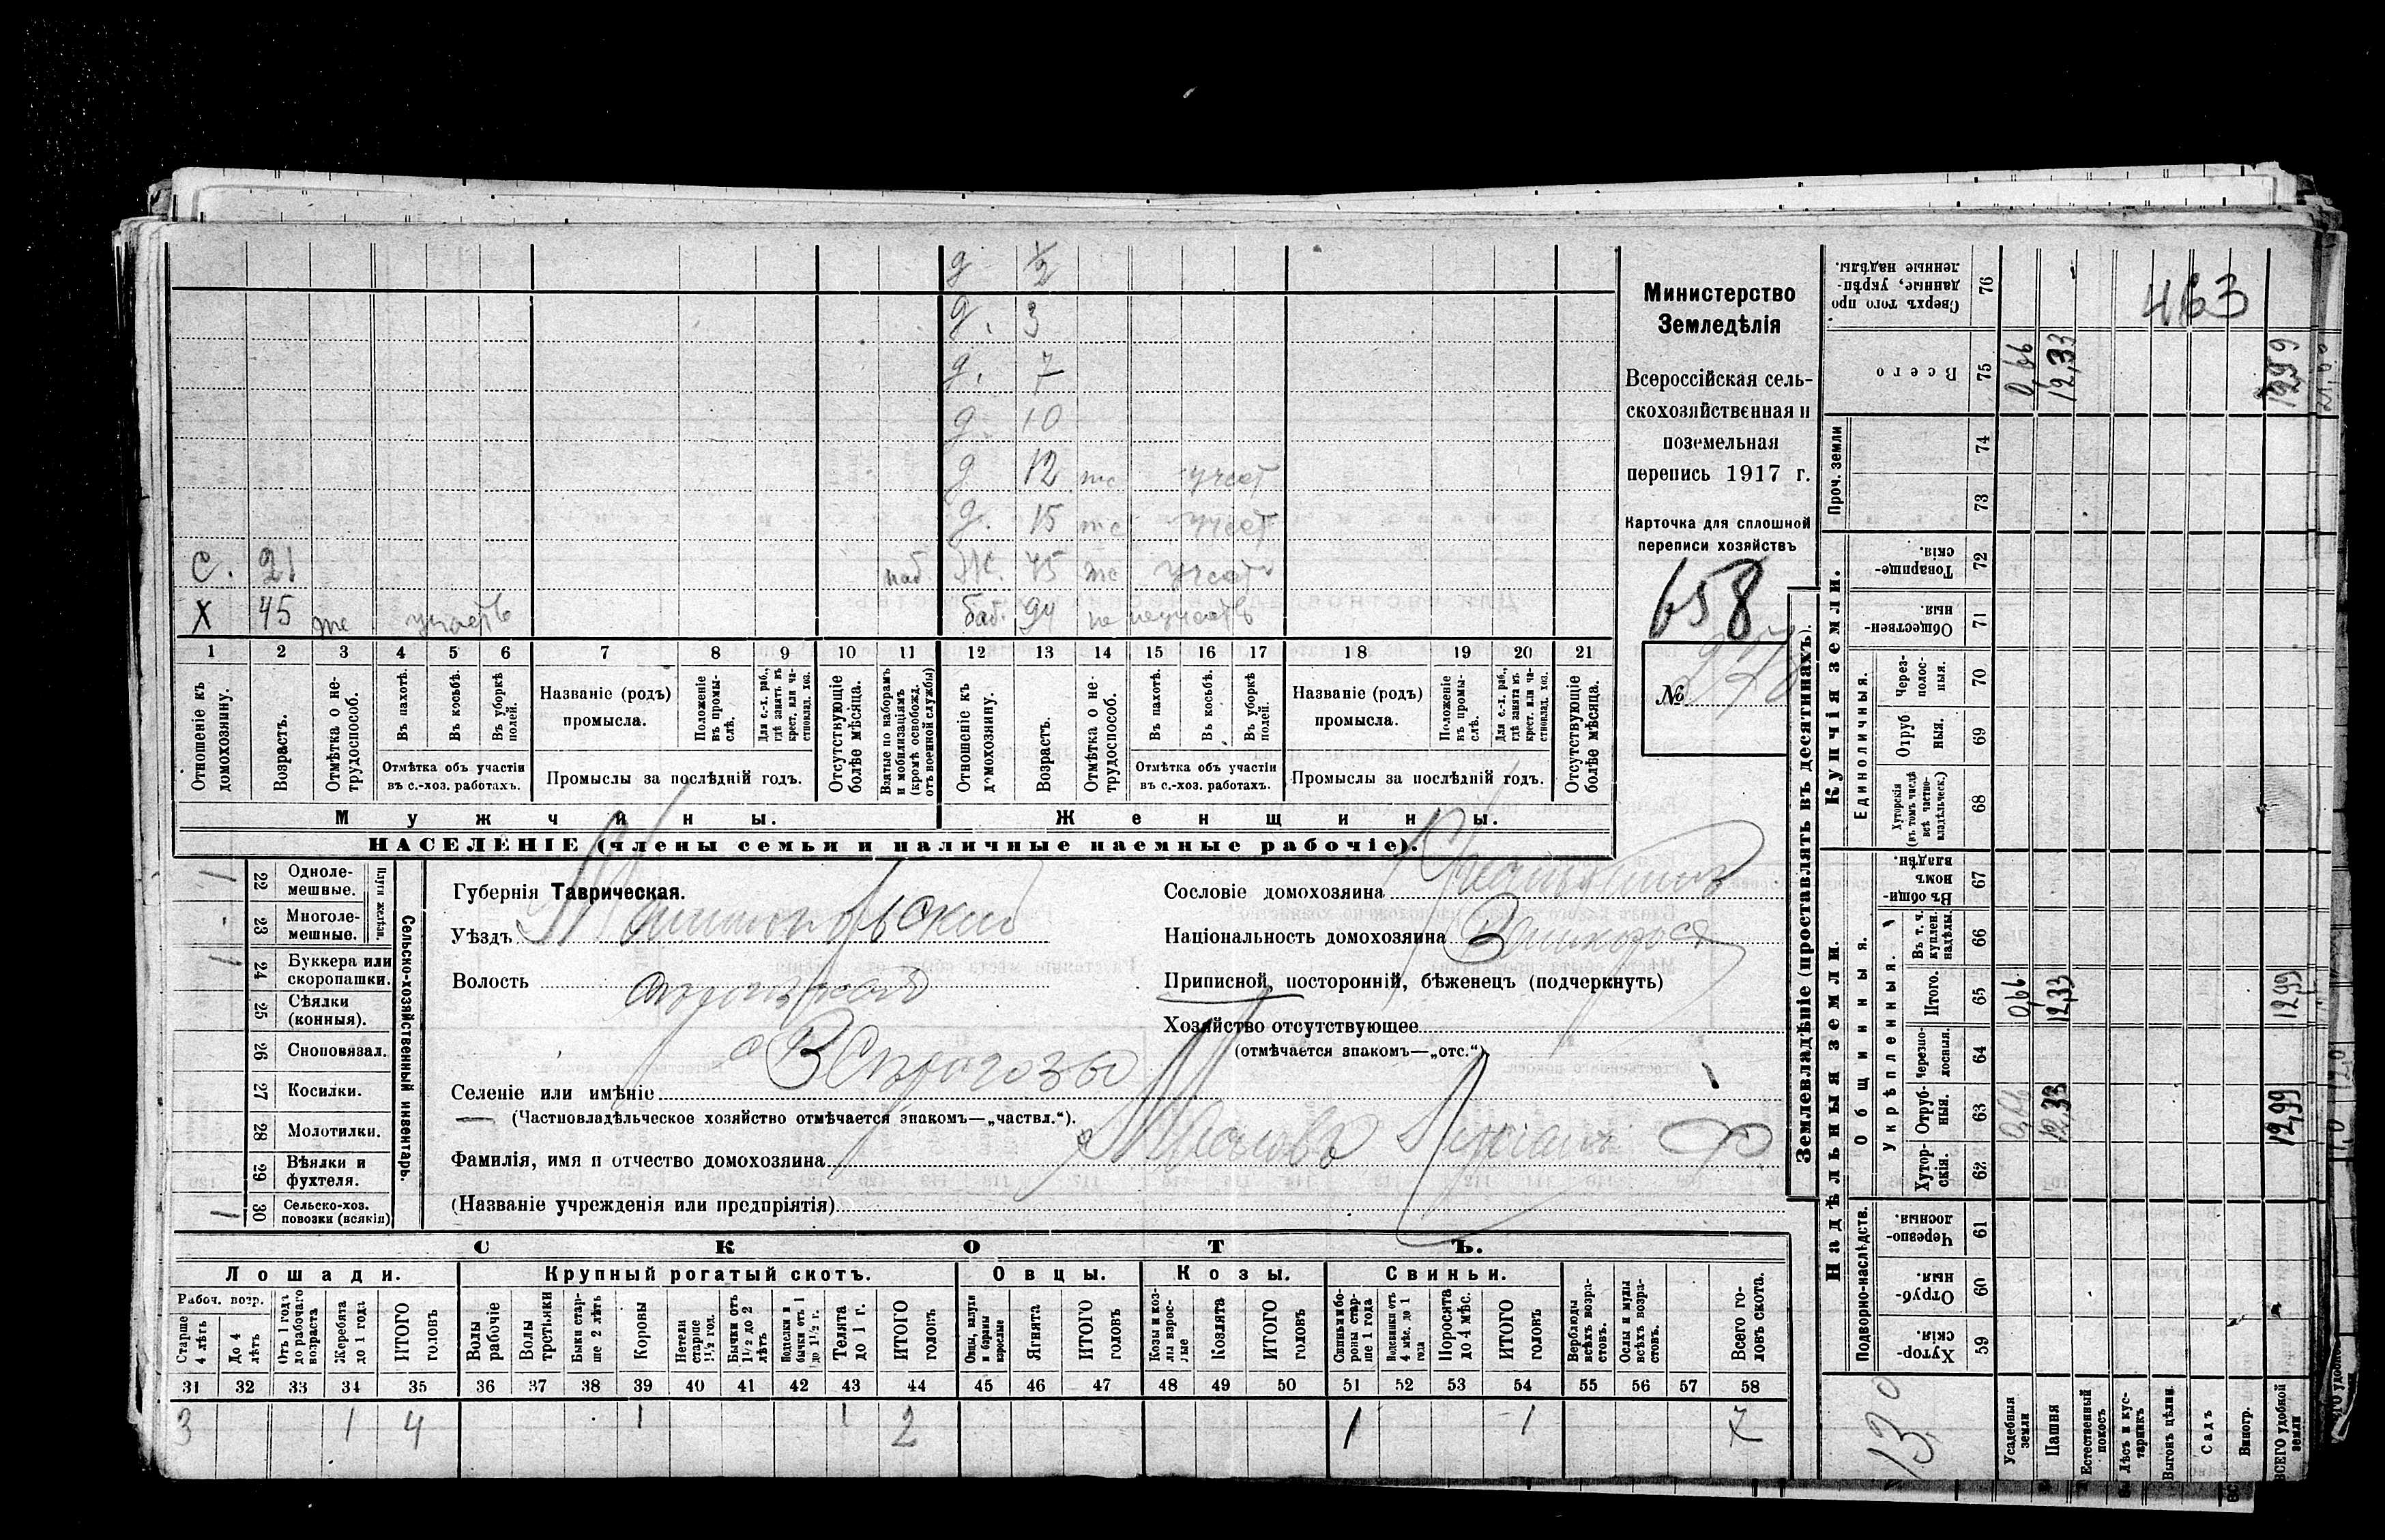 д ½
д. 3
д. 7
д. 10
д 12 участ
д. 15 участ
С. 21 наб. Ж. 45 участ
Х 45 участв баб. 94 не участв
1 2 3 4 5 6 7 8 9 10 11 12 13 14 15 16 17 18 19 20 21
Отношеніе къ домохозяину.
Возрастъ.
Отмѣтка о нетрудоспособ.
Въ пахотѣ.
Въ косьбѣ.
Въ уборкѣ полей.
Отмѣтка объ участіи въ с.-хоз. работахъ.
Названіе (родъ) промысла.
Положеніе въ промыслѣ.
Для с.-х. раб., гдѣ занятъ въ крест. или частновлад. хоз.
Промыслы за послѣдній годъ.
Отсутствующіе болѣе мѣсяца.
Взятые по наборамъ и мобилизаціямъ (кромѣ освобожд. отъ военной службы)
Отношеніе къ домохозяину.
Возрастъ.
Отмѣтка о нетрудоспособ.
Въ пахотѣ.
Въ косьбѣ.
Въ уборкѣ полей.
Отмѣтка объ участіи въ с.-хоз. работахъ.
Названіе (родъ) промысла.
Положеніе въ промыслѣ.
Для с.-х. раб., гдѣ занята въ крест. или частновлад. хоз.
Промыслы за послѣдній годъ.
Отсутствующіе болѣе мѣсяца.
Мужчины.
Женщины.
НАСЕЛЕНІЕ (члены семьи и наличные наемные рабочіе).
Министерство
Земледѣлія
Всероссійская сель-
скохозяйственная и
поземельная
перепись 1917 г.
Карточка для сплошной
переписи хозяйствъ
658
№
22 Одноле-
мешные.
23 Многоле-
мешные.
Плуги желѣзн.
24 Буккера или
скоропашки.
25 Сѣялки
(конныя).
26 Сноповязал.
27 Косилки.
28 Молотилки.
29 Вѣялки и
фухтеля.
30 Сельско-хоз.
повозки (всякія)
Сельско-хозяйственный инвентарь.
Губернія Таврическая.
Уѣздъ
Волость
с В Сірогозы
Селеніе или имѣніе
(Частновладѣльческое хозяйство отмѣчается знакомъ—„частвл.“).
Фамилія, имя и отчество домохозяина
(Названіе учрежденія или предпріятія)
Сословіе домохозяина
Національность домохозяина
Приписной, посторонній, бѣженец (подчеркнуть)
Хозяйство отсутствующее
(отмѣчается знакомъ—„отс.“).
СКОТЪ.
Лошади. Крупный рогатый скотъ. Овцы. Козы. Свиньи.
Рабоч. возр.
Старше 4 лѣтъ
До 4 лѣтъ
Отъ 1 года до рабочаго возраста
Жеребята до 1 года
ИТОГО головъ
Волы рабочіе
Волы третьяки
Быки старше 2 лѣтъ
Коровы
Нетели старше 1½ год.
Бычки отъ 1½ до 2 лѣтъ
Подтелки и бычки отъ 1 до 1½ г.
Телята до 1 г.
ИТОГО головъ
Овцы, валухи и бараны взрослые
Ягнята
ИТОГО головъ
Козы и козлы взрослые
Козлята
ИТОГО головъ
Свиньи и боровы старше 1 года
Подсвинки отъ 4 мѣс. до 1 года
Поросята до 4 мѣс.
ИТОГО головъ
Верблюды всѣхъ возрастовъ.
Ослы и мулы всѣхъ возрастовъ.
Всего головъ скота.
31 32 33 34 35 36 37 38 39 40 41 42 43 44 45 46 47 48 49 50 51 52 53 54 55 56 57 58
3 1 4 1 1 2 1 1 7
Землевладѣніе (проставлять въ десятинахъ).
463
Сверхъ того проданные, укрѣпленные надѣлы. 76
Всего 75 0,66 12,33 12,99
Проч. земли 74 73
Купчія земли.
Товарищескія. 72
Общественныя. 71
Единоличныя.
Черезполосныя. 70
Отрубныя. 69
Хуторскія (въ томъ числѣ всѣ частновладѣльческ.) 68
Надѣльныя земли.
Общинныя.
Въ общинномъ владѣн. 67
Укрѣпленныя.
Въ т. ч. куплен. надѣлы. 66
Итого. 65 0,66 12,33 12,99
Черезполосныя. 64
Отрубныя. 63 0,66 12,33 12,99
Хуторскія. 62
Подворно-наслѣдств.
Черезполосныя. 61
Отрубныя. 60
Хуторскія. 59
13
Усадебныя земли
Пашня
Естественный покосъ
Лѣсъ и кустарникъ
Выгонъ цѣлин.
Садъ
Виногр.
ВСЕГО удобной земли